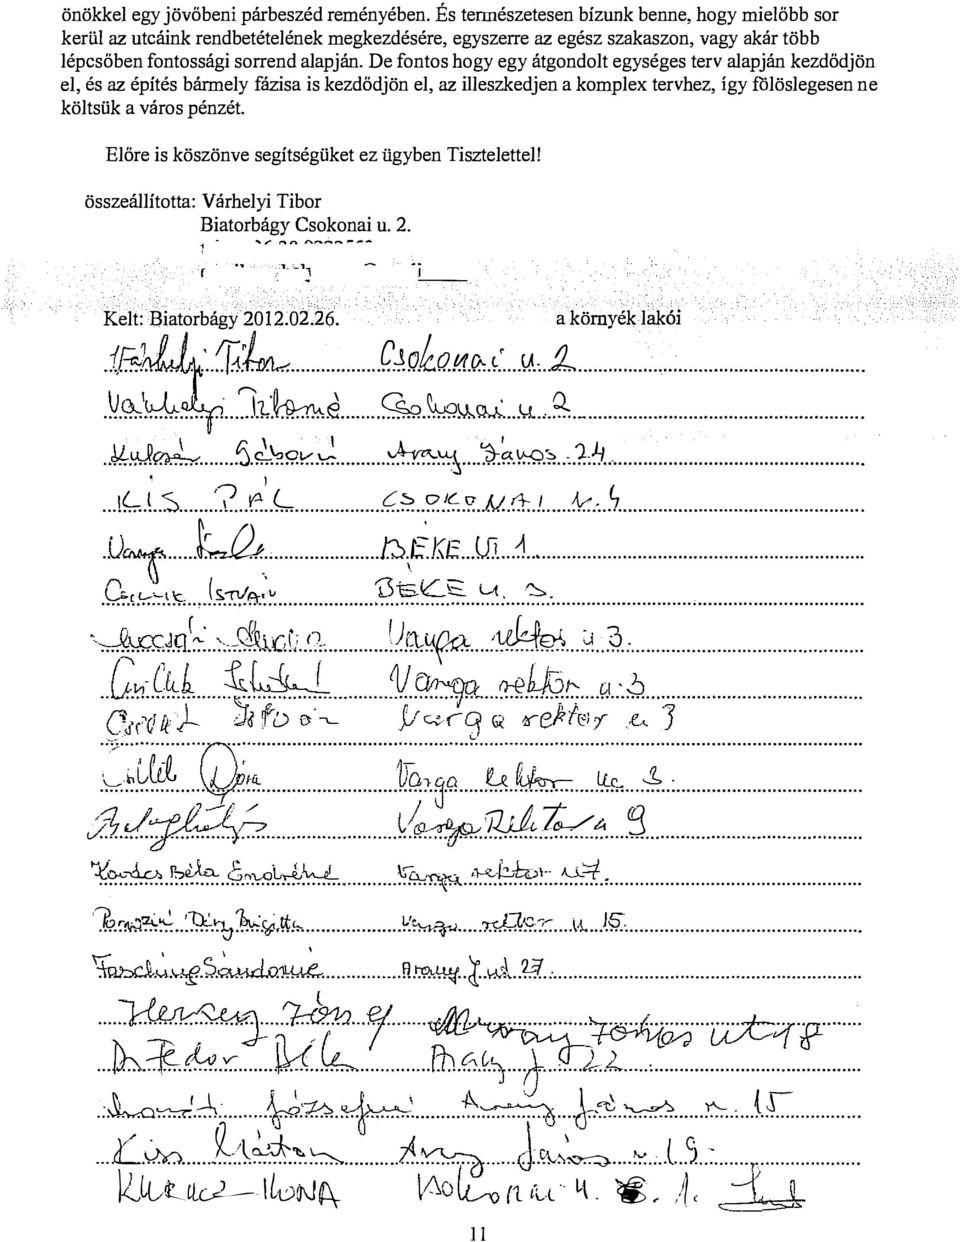 önökkel egy jövőbeni párbeszéd reményében. És természetesen bízunk benne, hogy mielőbb sor
kerül az utcáink rendbetételének megkezdésére, egyszerre az egész szakaszon, vagy akár több
lépcsőben fontossági sorrend alapján. De fontos hogy egy átgondolt egységes terv alapján kezdődjön
el, és az építés bármely fázisa is kezdődjön el, az illeszkedjen a komplex tervhez, így fölöslegesen ne
költsük a város pénzét.
Előre is köszönve segítségüket ez ügyben Tisztelettel!
összeállította: Várhelyi Tibor
Biatorbágy Csokonai u. 2.
Kelt: Biatorbágy 2012.02.26. a környék lakói
Várhelyi Tibor Csokonai u. 2
Várhelyi Tiborné Csokonai u. 2
Gáborné Arany János 24
KIS PÁL CSOKONAI
Varga BÉKE ÚT 1
ISTVÁN BÉKE u. 3.
Varga rektor u 3.
Varga rektor u. 3
István Varga rektor u 3
Dóra Varga Rektor u. 3.
Varga Rektor u 9
Kovács Béla Endréné Varga rektor u 7.
Déry Brigitta Varga rektor u 15.
Fasching Sándorné Arany J ud 27.
Arany János út 18
Dr Fedor Béla Arany J 22
Józsefné Arany János u. 15
Kiss Márton Arany János u 19.
KURUCZ ILONA Csokonai u. 1.
11